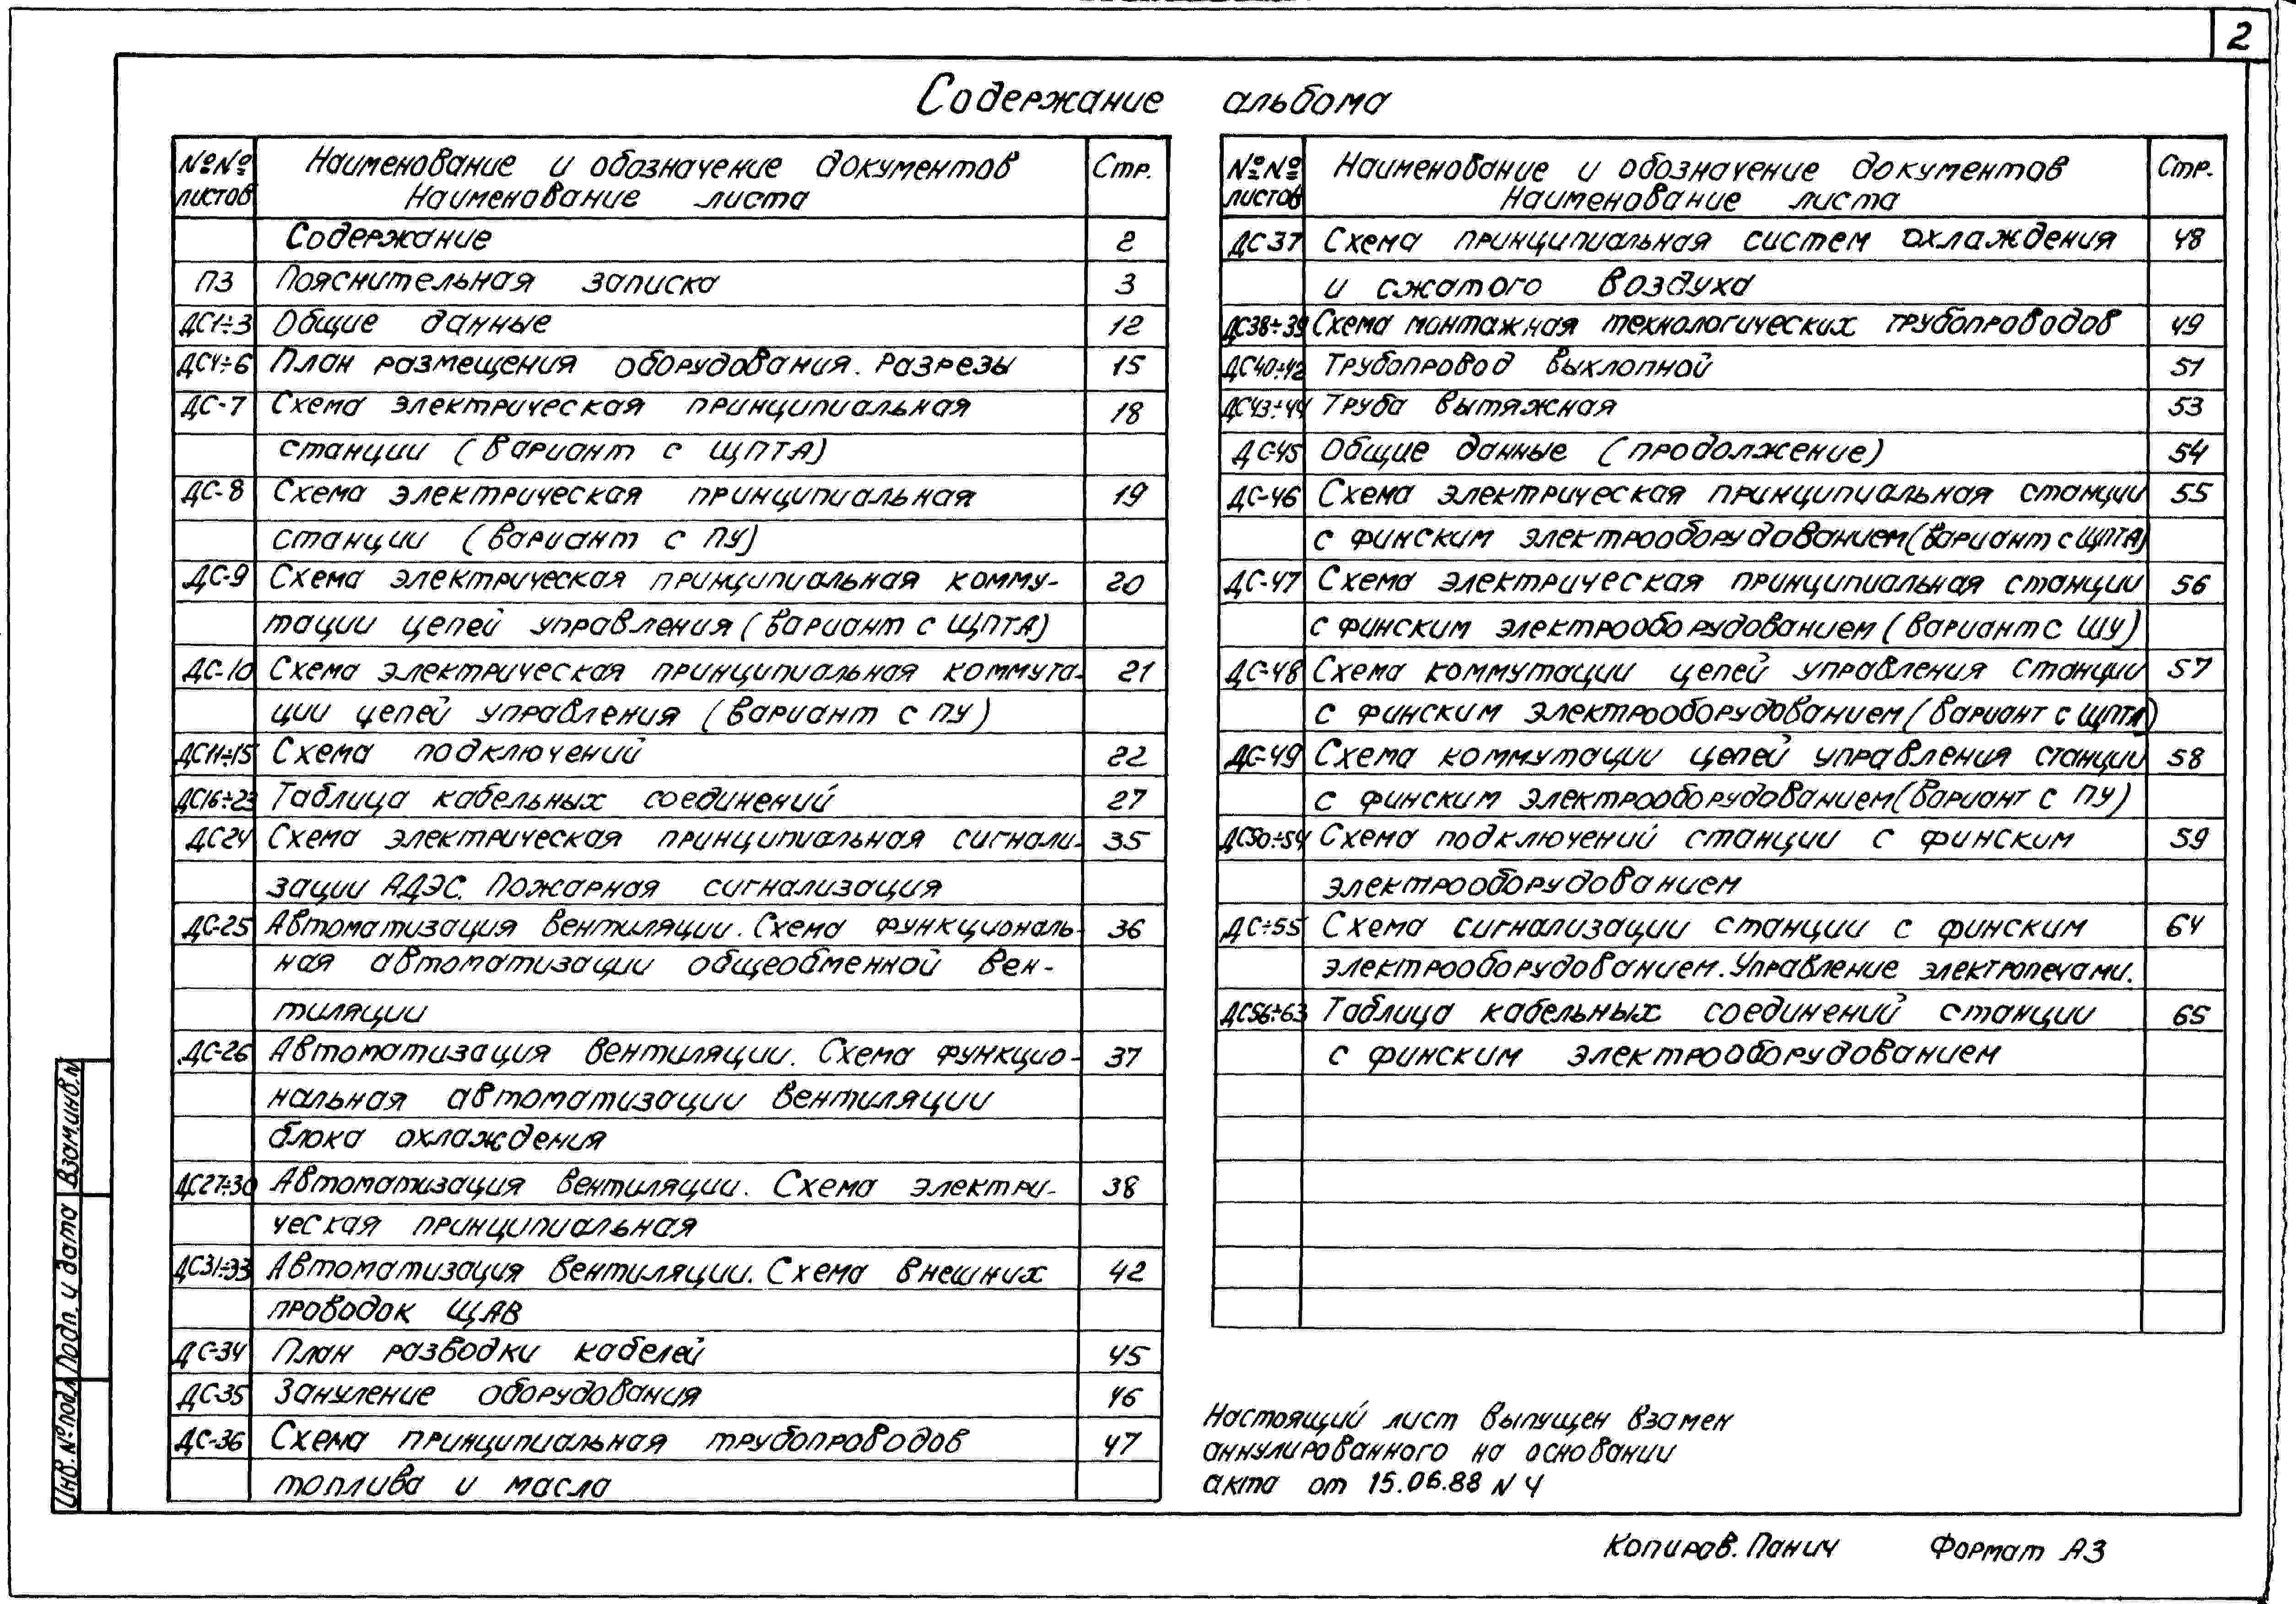 2
Содержание альбома
№№ листов
Наименование и обозначение документов
Наименование листа
Стр.
Содержание 2
ПЗ Пояснительная записка 3
ДС1÷3 Общие данные 12
ДС4÷6 План размещения оборудования. Разрезы 15
ДС-7 Схема электрическая принципиальная 18
станции (вариант с ЩПТА)
ДС-8 Схема электрическая принципиальная 19
станции (вариант с ПУ)
ДС-9 Схема электрическая принципиальная комму- 20
тации цепей управления (вариант с ЩПТА)
ДС-10 Схема электрическая принципиальная коммута- 21
ции цепей управления (вариант с ПУ)
ДС11÷15 Схема подключений 22
ДС16÷23 Таблица кабельных соединений 27
ДС24 Схема электрическая принципиальная сигнали- 35
зации АДЭС. Пожарная сигнализация
ДС-25 Автоматизация вентиляции. Схема функциональ- 36
ная автоматизации общеобменной вен-
тиляции
ДС-26 Автоматизация вентиляции. Схема функцио- 37
нальная автоматизации вентиляции
блока охлаждения
ДС27÷30 Автоматизация вентиляции. Схема электри- 38
ческая принципиальная
ДС31÷33 Автоматизация вентиляции. Схема внешних 42
проводок ЩАВ
ДС-34 План разводки кабелей 45
ДС-35 Зануление оборудования 46
ДС-36 Схема принципиальная трубопроводов 47
топлива и масла
№№ листов
Наименование и обозначение документов
Наименование листа
Стр.
ДС37 Схема принципиальная систем охлаждения 48
и сжатого воздуха
ДС38÷39 Схема монтажная технологических трубопроводов 49
ДС40÷42 Трубопровод выхлопной 51
ДС43÷44 Труба вытяжная 53
ДС-45 Общие данные (продолжение) 54
ДС-46 Схема электрическая принципиальная станции 55
с финским электрооборудованием (вариант с ЩПТА)
ДС-47 Схема электрическая принципиальная станции 56
с финским электрооборудованием (вариант с ШУ)
ДС-48 Схема коммутации цепей управления станции 57
с финским электрооборудованием (вариант с ЩПТА)
ДС-49 Схема коммутации цепей управления станции 58
с финским электрооборудованием (вариант с ПУ)
ДС50÷54 Схема подключений станции с финским 59
электрооборудованием
ДС÷55 Схема сигнализации станции с финским 64
электрооборудованием. Управление электропечами.
ДС56÷63 Таблица кабельных соединений станции 65
с финским электрооборудованием
Настоящий лист выпущен взамен
аннулированного на основании
акта от 15.06.88 N 4
Взам.инв.№
Подп. и дата
Инв.№подл
Копиров. Панич Формат А3